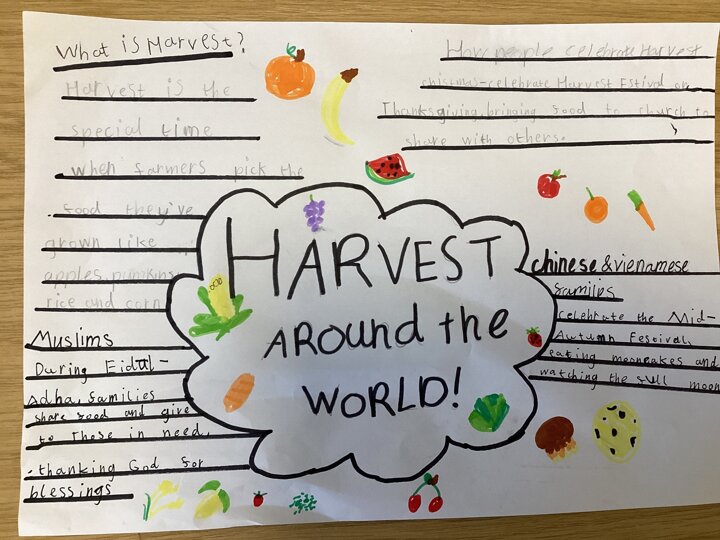 What is Harvest?
Harvest is the
special time
when farmers pick the
food they've
grown like
apples, pumkins
rice and corn
Muslims
During Eidul-
Adha, families
share food and give
to those in need.
. thanking God for
blessings
HARVEST
AROUnd the
WORLD!
How people celebrate Harvest
christmas-celebrate Harvest Estival or
Thanksgiving, bringing food to church to
share with others.
chinese & vienamese
familes
celebrate the Mid-
Autumn Festival,
eating mooncakes and
watching the full moon